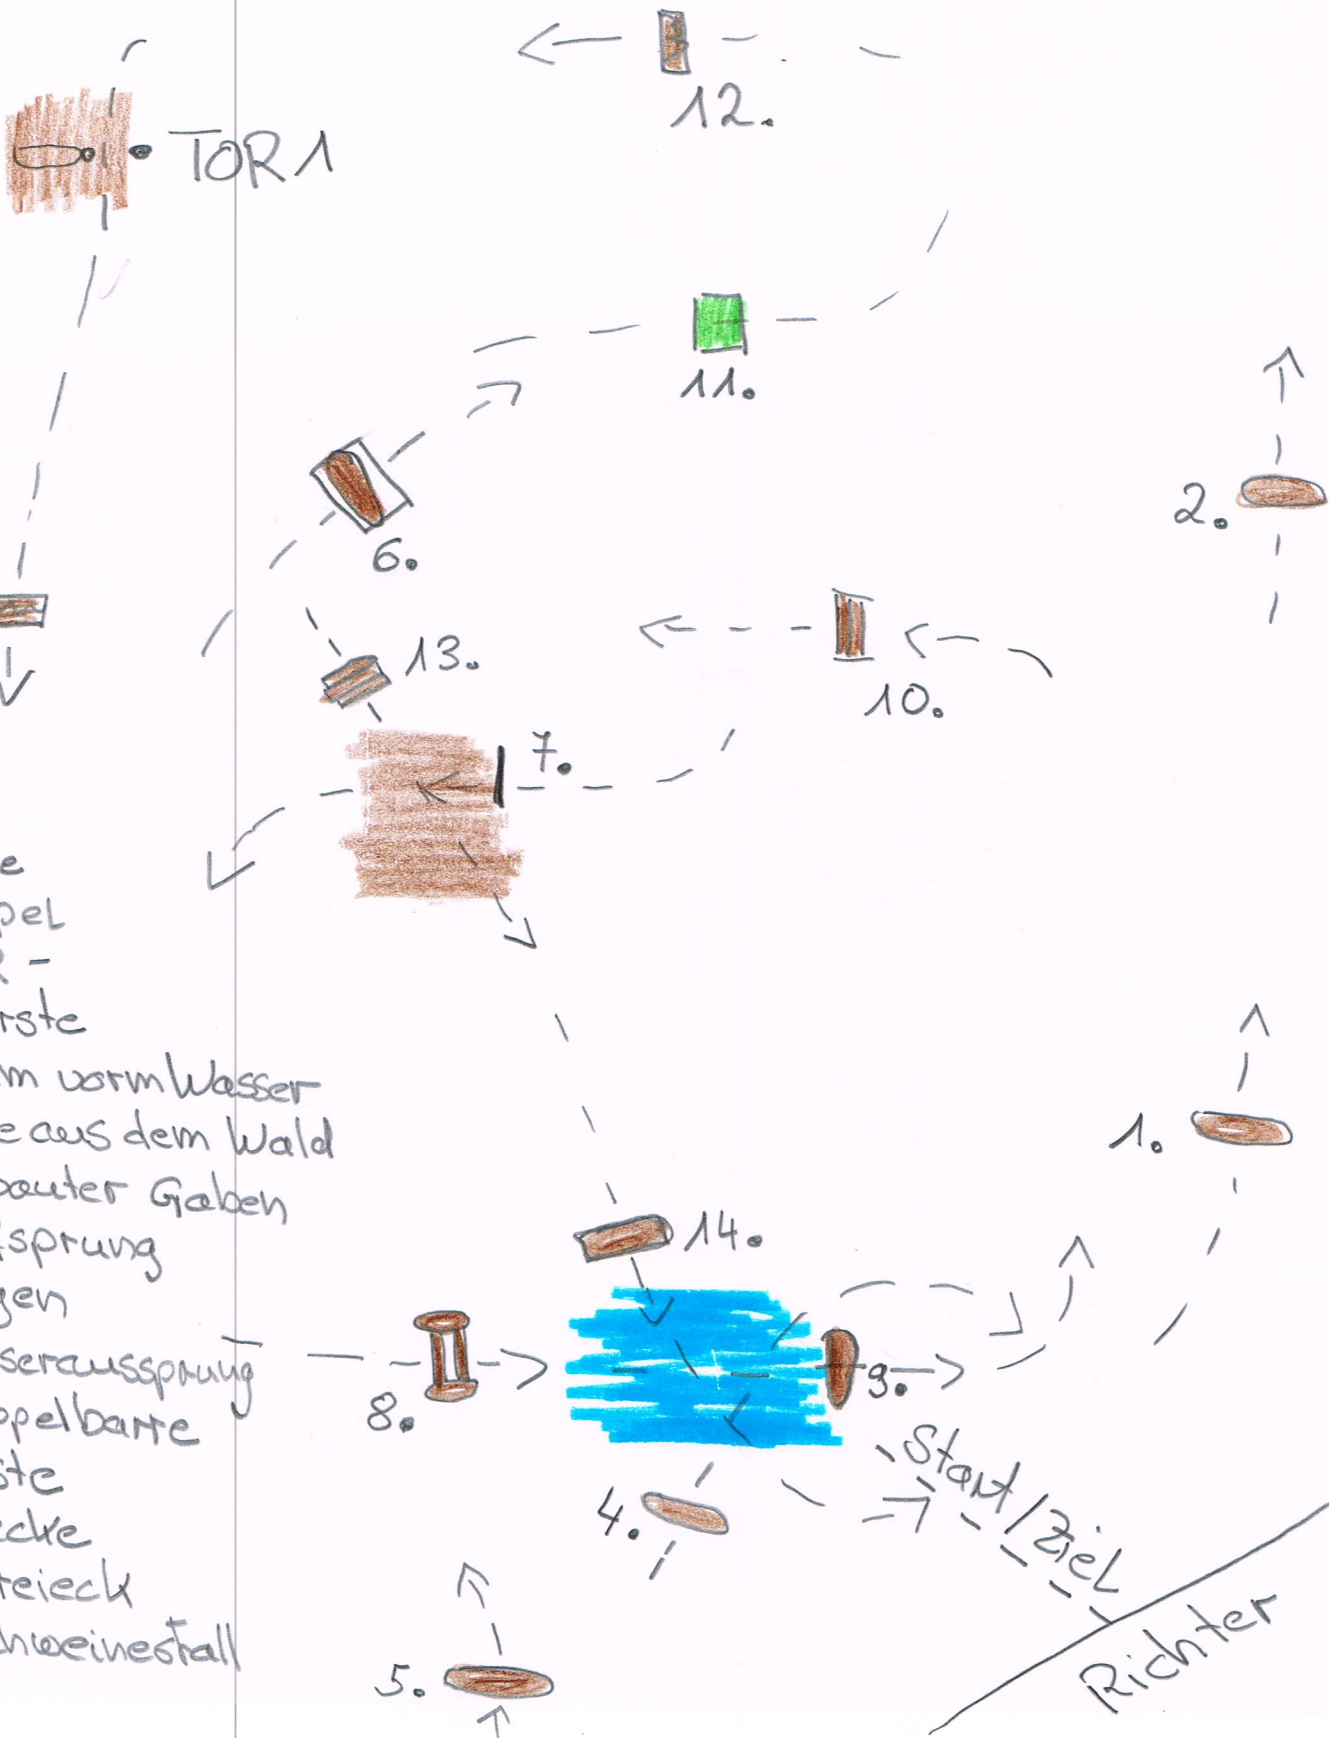 12.
TOR 1
11.
2.
6.
13.
10.
7.
e
pel
-
rste
m vorm Wasser
e aus dem Wald
bauter Graben
fsprung
gen
seraussprung
ppelbarre
ste
ecke
reieck
hweinestall
1.
14.
8.
9.
Start/Ziel
4.
5.
Richter